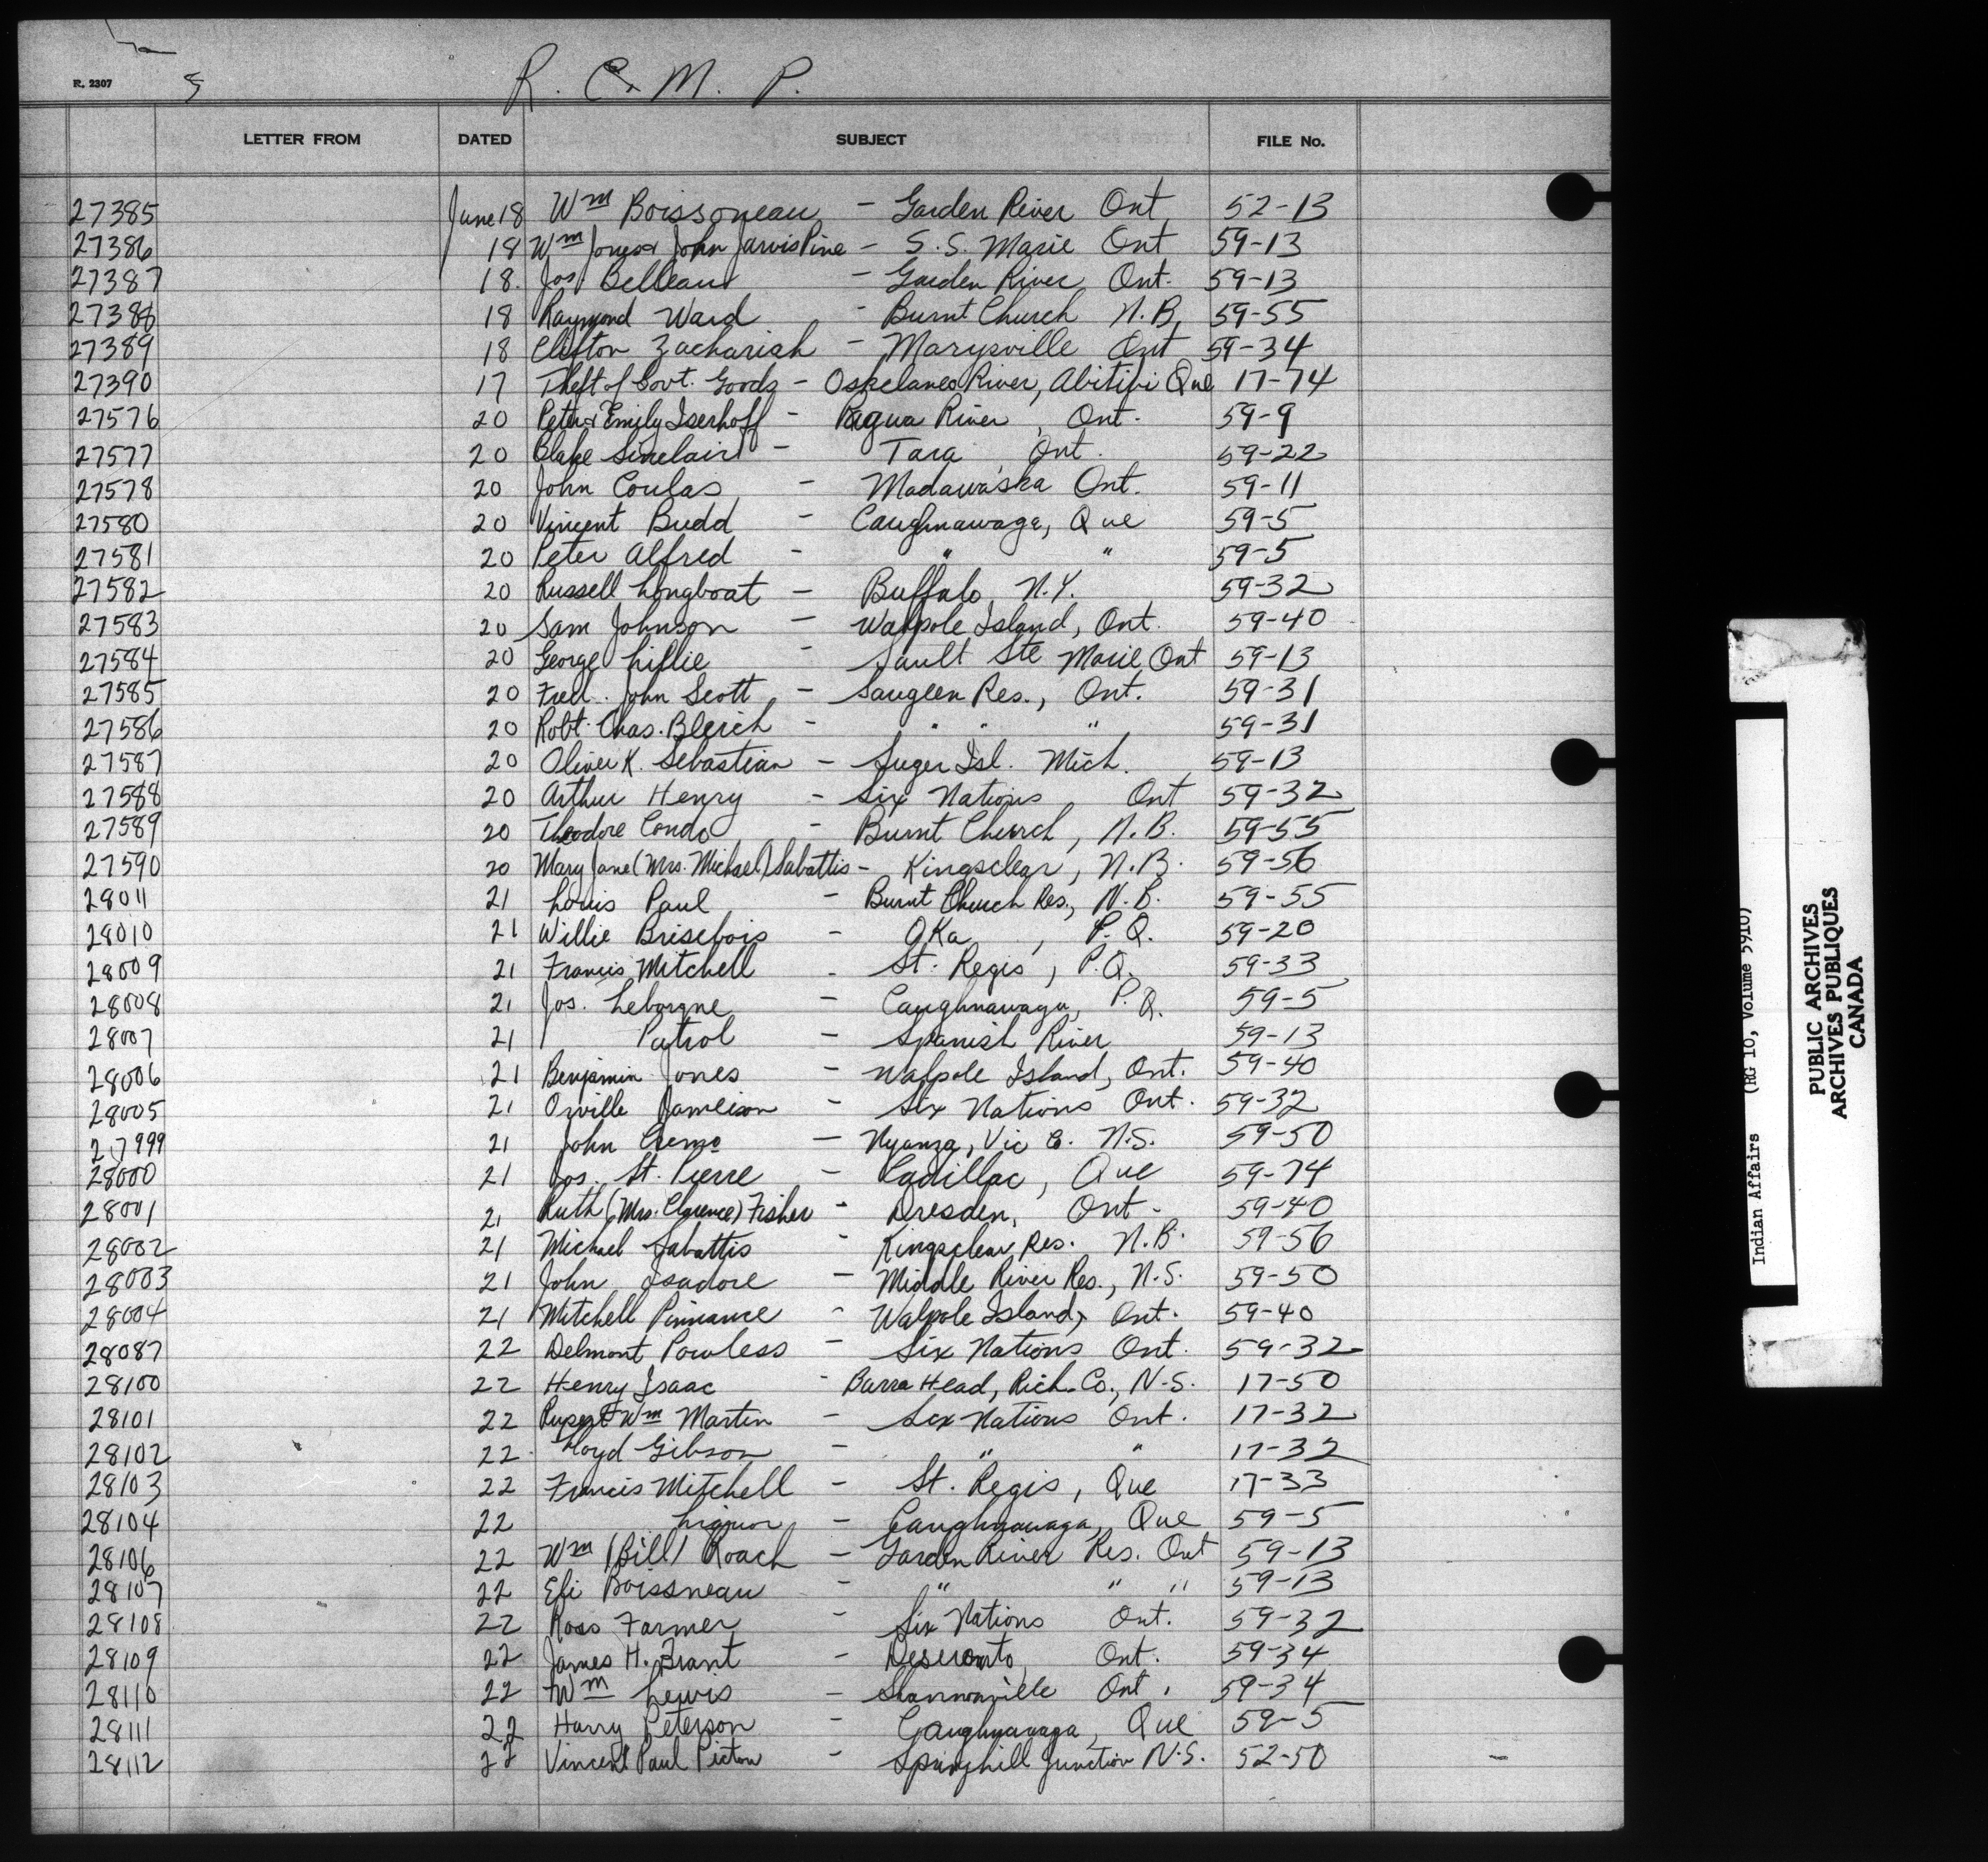 R. 2307
R. C. M. P.
LETTER FROM DATED SUBJECT FILE No.
27385 June 18 Wm Boissoneau - Garden River Ont 52-13
27386 18 Wm Jones & John Jarvis Pine - S. S. Marie Ont 59-13
27387 18. Jos Belleau - Garden River Ont. 59-13
27388 18 Raymond Ward - Burnt Church N.B. 59-55
27389 18 Clifton Zachariah - Marysville Ont 59-34
27390 17 Theft of Govt. Goods - Oskelaneo River, Abitibi Que 17-74
27576 20 Peter & Emily Iserhoff - Pagwa River, Ont. 59-9
27577 20 Blake Sinclair - Tara, Ont. 59-22
27578 20 John Coulas - Madawaska Ont. 59-11
27580 20 Vincent Budd - Caughnawaga, Que 59-5
27581 20 Peter Alfred - " " 59-5
27582 20 Russell Longboat - Buffalo, N.Y. 59-32
27583 20 Sam Johnson - Walpole Island, Ont. 59-40
27584 20 George Lillie - Sault Ste Marie Ont 59-13
27585 20 Fred. John Scott - Saugeen Res., Ont. 59-31
27586 20 Robt. Chas. Bleich - " " " 59-31
27587 20 Oliver K. Sebastian - Suger Isl. Mich. 59-13
27588 20 Arthur Henry - Six Nations Ont 59-32
27589 20 Theodore Condo - Burnt Church, N.B. 59-55
27590 20 Mary Jane (Mrs. Michael) Sabattis - Kingsclear, N.B. 59-56
28011 21 Louis Paul - Burnt Church Res., N.B. 59-55
28010 21 Willie Brisebois - Oka, P.Q. 59-20
28009 21 Francis Mitchell - St. Regis, P.Q. 59-33
28008 21 Jos. Leborgne - Caughnawaga, P.Q. 59-5
28007 21 Patrol - Spanish River 59-13
28006 21 Benjamin Jones - Walpole Island, Ont. 59-40
28005 21 Orville Jameison - Six Nations Ont. 59-32
27999 21 John Cremo - Nyanza, Vic C. N.S. 59-50
28000 21 Jos. St. Pierre - Cadillac, Que 59-74
28001 21 Ruth (Mrs. Clarence) Fisher - Dresden, Ont - 59-40
28002 21 Michael Sabattis - Kingsclear Res. N.B. 59-56
28003 21 John Isadore - Middle River Res., N.S. 59-50
28004 21 Mitchell Pinnance - Walpole Island, Ont. 59-40
28087 22 Delmont Powless - Six Nations Ont. 59-32
28100 22 Henry Isaac - Barra Head, Rich. Co., N.S. 17-50
28101 22 Rupert Wm Martin - Six Nations Ont. 17-32
28102 22. Floyd Gibson - " " 17-32
28103 22 Francis Mitchell - St. Regis, Que 17-33
28104 22 Liquor - Caughnawaga, Que 59-5
28106 22 Wm (Bill) Roach - Garden River Res. Ont 59-13
28107 22 Eli Boissneau - " " " 59-13
28108 22 Ross Farmer - Six Nations Ont. 59-32
28109 22 James H. Brant - Deseronto, Ont. 59-34
28110 22 Wm Lewis - Shannonville Ont. 59-34
28111 22 Harry Peterson - Caughnawaga, Que 59-5
28112 22 Vincent Paul Picton - Springhill Junction N.S. 52-50
Indian Affairs (RG 10, Volume 5910)
PUBLIC ARCHIVES
ARCHIVES PUBLIQUES
CANADA